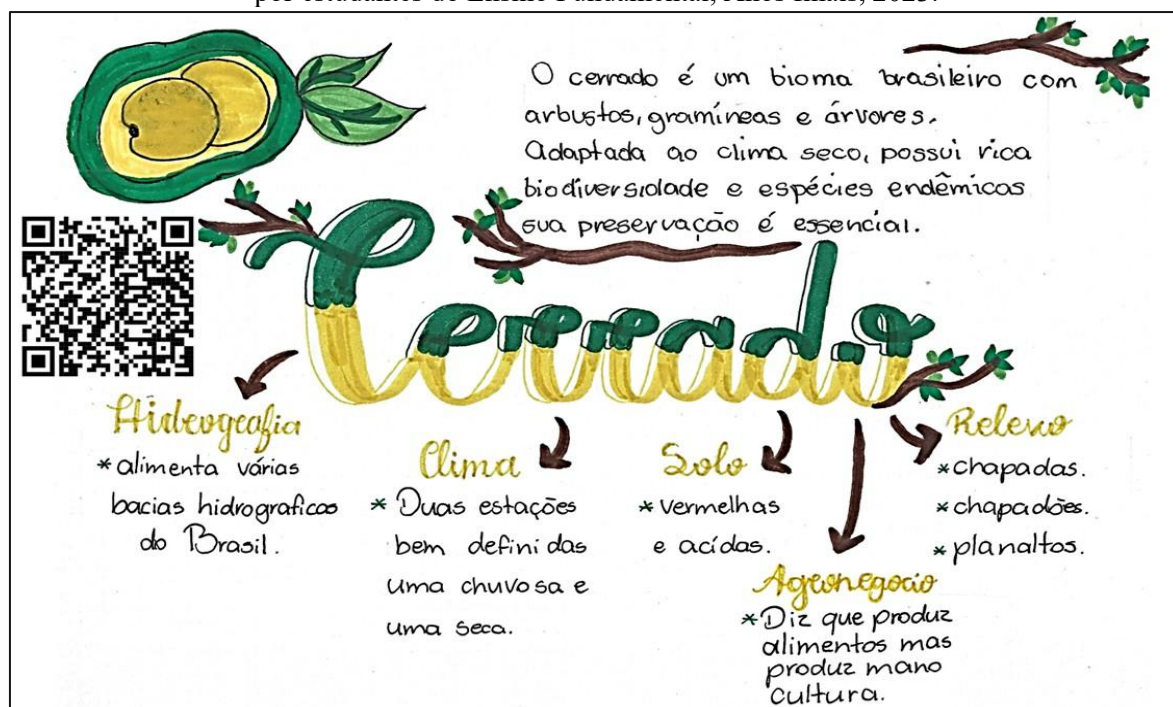 por estudantes do Ensino Fundamental, Anos Finais, 2023.
O cerrado é um bioma brasileiro com
arbustos, gramíneas e árvores.
Adaptada ao clima seco, possui rica
biodiversidade e espécies endêmicas
sua preservação é essencial.
Cerrado
Hidrografia
* alimenta várias
bacias hidrograficas
do Brasil.
Clima
* Duas estações
bem definidas
uma chuvosa e
uma seca.
Solo
* vermelhas
e acídas.
Relevo
* chapadas.
* chapadões.
* planaltos.
Agronegocio
* Diz que produz
alimentos mas
produz mano
cultura.